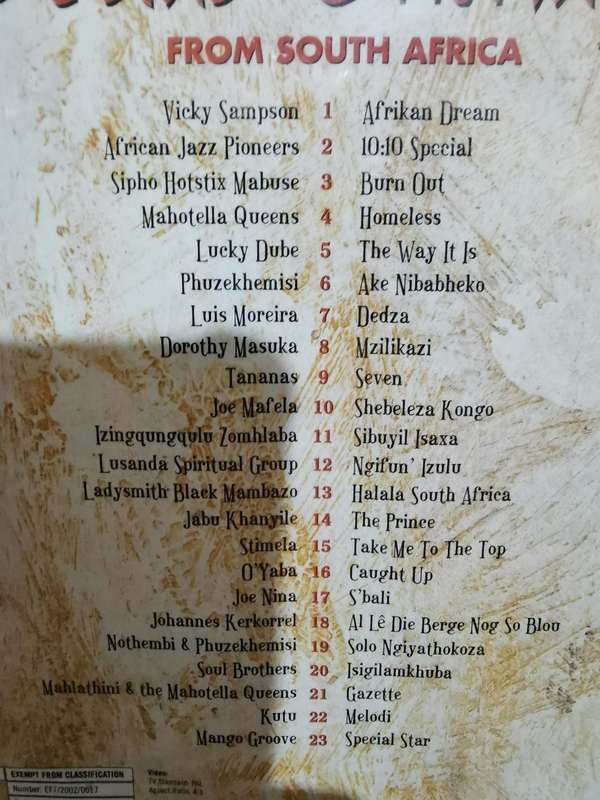 FROM SOUTH AFRICA
Vicky Sampson 1 Afrikan Dream
African Jazz Pioneers 2 10:10 Special
Sipho Hotstix Mabuse 3 Burn Out
Mahotella Queens 4 Homeless
Lucky Dube 5 The Way It Is
Phuzekhemisi 6 Ake Nibabheko
Luis Moreira 7 Dedza
Dorothy Masuka 8 Mzilikazi
Tananas 9 Seven
Joe Mafela 10 Shebeleza Kongo
Izingqungqulu Zomhlaba 11 Sibuyil Isaxa
Lusanda Spiritual Group 12 Ngifun' Izulu
Ladysmith Black Mambazo 13 Halala South Africa
Jabu Khanyile 14 The Prince
Stimela 15 Take Me To The Top
O'Yaba 16 Caught Up
Joe Nina 17 S'bali
Johannes Kerkorrel 18 Al Lê Die Berge Nog So Blou
Nothembi & Phuzekhemisi 19 Solo Ngiyathokoza
Soul Brothers 20 Isigilamkhuba
Mahlathini & the Mahotella Queens 21 Gazette
Kutu 22 Melodi
Mango Groove 23 Special Star
EXEMPT FROM CLASSIFICATION
Number: EFT/2002/0617
Video: